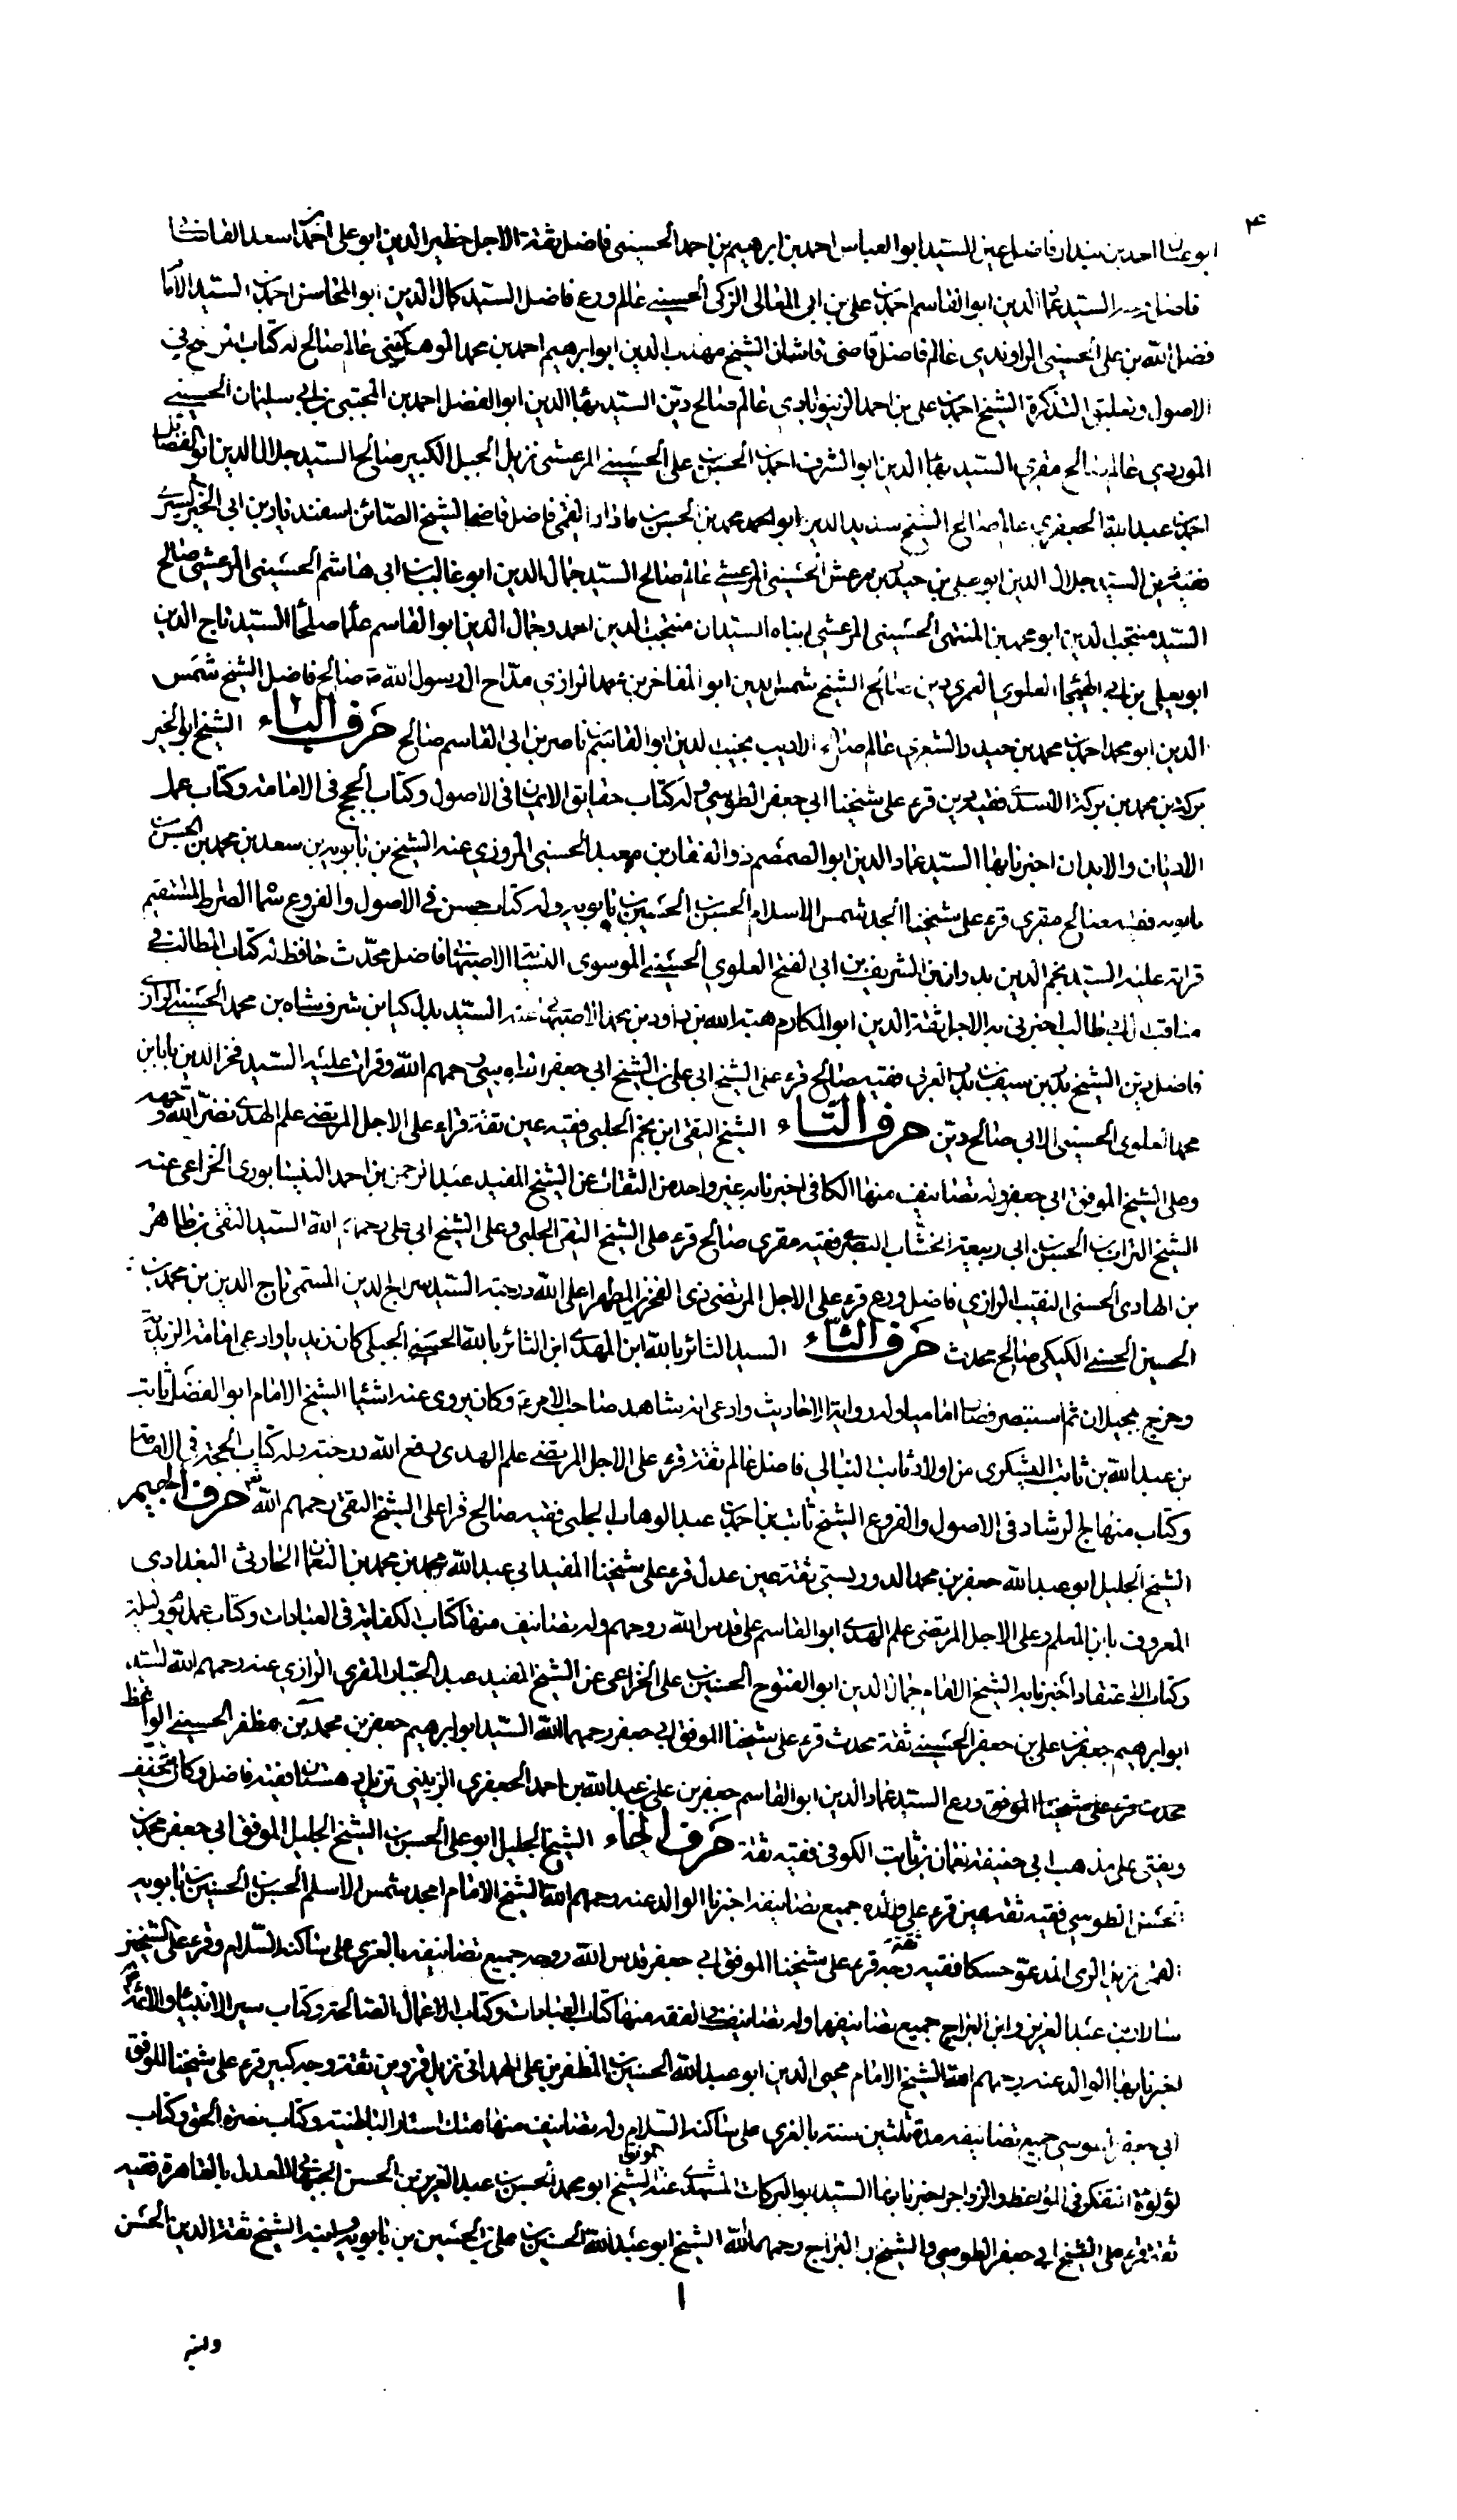 ابو عثمان احمد بن بندار فاضل عين السيد ابو العباس احمد بن ابرهيم بن احمد الحسيني فاضل ثقة الاجل خطير الدين ابو على احمد بن اسعد القاشاني
فاضل السيد عماد الدين ابو القاسم احمد بن على بن ابى المعالى الزكى الحسيني عالم ورع فاضل السيد كمال الدين ابو المحاسن احمد بن السيد الامام
فضل الله بن على الحسيني الراوندي عالم فاضل قاضى قاشان الشيخ مهذب الدين ابو ابرهيم احمد بن محمد الوهركيني عالم صالح له كتاب في
الاصول وتعليق التذكرة الشيخ احمد بن على بن احمد الزينوابادي عالم صالح دين السيد بهاء الدين ابو الفضل احمد بن المجتبى بن ابي سليمان الحسيني
الموردي عالم صالح مقري السيد بهاء الدين ابو الشرف احمد بن الحسن بن على الحسيني المرعشى نزيل الجبل الكبير صالح السيد جلال الدين ابو الفضائل
احمد بن عبد الله الجعفري عالم صالح الشيخ سديد الدين ابو محمد محمد بن الحسن بن ماذار القمى فاضل الشيخ الصائن اسفنديار بن ابى الخير
فقيه دين السيد جلال الدين ابو على بن حيدر بن مرعش الحسيني المرعشي عالم صالح السيد جمال الدين ابو غالب بن ابى هاشم الحسيني المرعشي صالح
السيد منتجب الدين ابو محمد بن المنتهى الحسيني المرعشي ابناه السيدان منتجب الدين احمد وجمال الدين ابو القاسم علماء صلحاء السيد تاج الدين
ابو يعلى بن ابي الهيجا العلوي العمري دين صالح الشيخ شمس الدين ابو المفاخر بن محمد الرازي مداح ال رسول الله ص صالح فاضل الشيخ شمس
الدين ابو محمد احمد بن محمد بن حيدر الشعري عالم صالح الاديب نجيب الدين ابو القاسم بن ناصر بن ابى القاسم صالح حرف الباء الشيخ ابو الخير
بركة بن محمد بن بركة الاسدى فقيه دين قرء على شيخنا ابي جعفر الطوسي وله كتاب حقايق الايمان فى الاصول وكتاب الحجج فى الامامة وكتاب عمل
الاديان والابدان اخبرنا بها السيد عماد الدين ابو الصمصام ذو الفقار بن معبد الحسني المروزي عنه الشيخ بن بابويه بن سعد بن محمد بن الحسن بن
بابويه فقيه صالح مقرى قرء على شيخنا الجد شمس الاسلام الحسن بن الحسين بن بابويه وله كتاب حسن في الاصول والفروع سماه الصراط المستقيم
قراته عليه السيد نجم الدين بدران بن الشريف بن ابى الفتح العلوي الحسيني الموسوى النسابة الاصبهاني فاضل محدث حافظ له كتاب المطالب في
مناقب ال ابي طالب اخبرنى به الاجل ثقة الدين ابو المكارم هبة الله بن داود بن محمد الاصبهاني عنه السيد بدل كيا بن شرفشاه بن محمد الحسيني الرازى
فاضل دين الشيخ بدر بن سيف بن بدر العربى فقيه صالح قرء على الشيخ ابي على بن الشيخ ابي جعفر الطوسي رحمهم الله وقرات عليه السيد فخر الدين بابا بن
محمد العلوى الحسيني الابى صالح دين حرف التاء الشيخ التقى ابن نجم الحلبي فقيه عين ثقة قراء على الاجل المرتضى علم الهدى نضر الله وجهه
وعلى الشيخ الموفق ابي جعفر وله تصانيف منها الكافى اخبرنا به غير واحد من الثقات عن الشيخ المفيد عبد الرحمن بن احمد النيسابورى الخزاعى عنه
الشيخ التواب بن الحسن بن ابى ربيعة الخشاب البصرى فقيه مقرى صالح قرء على الشيخ التقى الحلبى وعلى الشيخ ابي على رحمهم الله السيد التقى بن طاهر
بن الهادى الحسني النقيب الرازي فاضل ورع قرء على الاجل المرتضى ذى الفخرين المطهر اعلى الله درجته السيد سراج الدين المسمى تاج الدين بن محمد بن
الحسين الحسني الكيكى صالح محدث حرف الثاء السيد الثائر بالله ابن المهدى ابن الثائر بالله الحسني الجيلى كان زيديا وادعى امامة الزيدية
وخرج بجيلان ثم استبصر فصار اماميا وله رواية الاحاديث وادعى انه شاهد صاحب الامر ع وكان يروى عنه اشياء الشيخ الامام ابو الفضل ثابت
بن عبد الله بن ثابت اليشكرى من اولاد ثابت البناني فاضل عالم ثقة قرء على الاجل المرتضى علم الهدى رفع الله درجته وله كتاب الحجة فى الامامة
وكتاب منهاج الرشاد فى الاصول والفروع الشيخ ثابت بن احمد بن عبد الوهاب الحلبى فقيه صالح قراء على الشيخ التقى رحمهم الله حرف الجيم
الشيخ الجليل ابو عبد الله جعفر بن محمد الدوريستي ثقة عين عدل قرء على شيخنا المفيد ابي عبد الله محمد بن محمد بن النعمان الحارثى البغدادى
المعروف بابن المعلم وعلى الاجل المرتضى علم الهدى ابو القاسم على قدس الله روحهم وله تصانيف منها كتاب الكفاية فى العبادات وكتاب عمل يوم وليلة
وكتاب الاعتقاد اخبرنا به الشيخ الامام جمال الدين ابو الفتوح الحسين بن على الخزاعى عن الشيخ المفيد عبد الجبار المقرى الرازي عنه رحمهم الله السيد
ابو ابرهيم جعفر بن على بن جعفر الحسيني ثقة محدث قرء على شيخنا الموفق ابي جعفر رحمهما الله السيد ابو ابرهيم جعفر بن محمد بن مظفر الحسيني الواعظ
محدث قرء على شيخنا الموفق ورع السيد عماد الدين ابو القاسم جعفر بن على بن عبد الله بن احمد الجعفرى الزينبى نزيل دهستان فقيه فاضل وكان يتحنف
ويفتى على مذهب ابي حنيفة نعمان بن ثابت الكوفى فقيه ثقة حرف الحاء الشيخ الجليل ابو على الحسن بن الشيخ الجليل الموفق ابي جعفر محمد بن
الحسن الطوسي فقيه ثقة عين قرء على والده جميع تصانيفه اخبرنا الوالد عنه رحمهم الله الشيخ الامام الجد شمس الاسلام الحسن بن الحسين بن بابويه
القمى نزيل الرى المدعو حسكا فقيه ثقة وجه قرء على شيخنا الموفق ابي جعفر قدس الله روحه جميع تصانيفه بالغرى على ساكنه السلام وقرء على الشيخين
سالار بن عبد العزيز وابن البراج جميع تصانيفهما وله تصانيف فى الفقه منها كتاب العبادات وكتاب الاعمال الصالحة وكتاب سير الانبياء والائمة
اخبرنا بها الوالد عنه رحمهم الله الشيخ الامام محيى الدين ابو عبد الله الحسين بن المظفر بن على الهمدانى نزيل قزوين ثقة وجه كبير قرء على شيخنا الموفق
ابي جعفر الطوسي جميع تصانيفه مدة ثلثين سنة بالغرى على ساكنه السلام وله تصانيف منها هتك استار الباطنية وكتاب نصرة الحق وكتاب
لؤلؤة التفكر فى المواعظ والزواجر اخبرنا بها السيد ابو البركات المشهدى عنه الشيخ الموفق ابو محمد الحسن بن عبد العزيز بن الحسن الجبهاني المعدل بالقاهرة فقيه
ثقة قرء على الشيخ ابي جعفر الطوسي والشيخ بن البراج رحمهما الله الشيخ ابو عبد الله الحسين بن على بن الحسين بن بابويه وابنه الشيخ ثقة الدين الحسن
وابنه